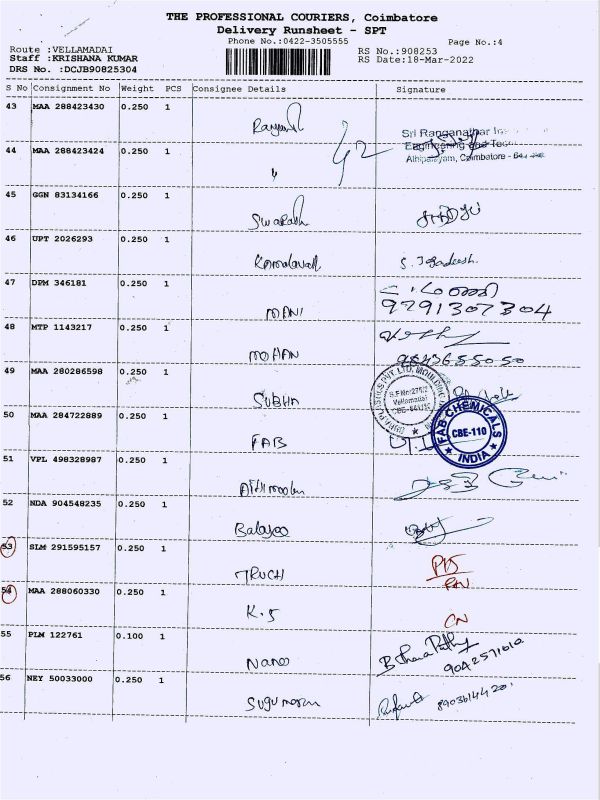 THE PROFESSIONAL COURIERS, Coimbatore
Delivery Runsheet - SPT
Phone No.:0422-3505555
Page No.:4
Route :VELLAMADAI
RS No.:908253
Staff :KRISHANA KUMAR
RS Date:18-Mar-2022
DRS No. :DCJB90825304
S No Consignment No Weight PCS Consignee Details Signature
43 MAA 288423430 0.250 1
Sri Ranganathar
Engineering and
Athipalayam, Coimbatore -
44 MAA 288423424 0.250 1
"
45 GGN 83134166 0.250 1
Swakash
46 UPT 2026293 0.250 1
S. Jagadeesh.
47 DPM 346181 0.250 1
MANI
9791307304
48 MTP 1143217 0.250 1
MOHAN
49 MAA 280286598 0.250 1
SUBHA
S.F.No:275/2
Vellamadai
50 MAA 284722889 0.250 1
FAB
FAB CHEMICALS
CBE-110
INDIA
51 VPL 498328987 0.250 1
52 NDA 904548235 0.250 1
Balajee
53 SLM 291595157 0.250 1
TRUCH
54 MAA 288060330 0.250 1
K.S
CN
55 PLM 122761 0.100 1
Nano
56 NEY 50033000 0.250 1
8903614420